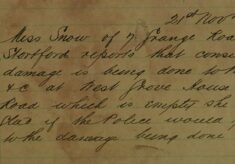 21st Nov
Miss Snow of 7, Grange Road
Stortford reports that consi
damage is being done to
&c at West Grove House
Road which is empty she
glad if the Police would
to the damage being done